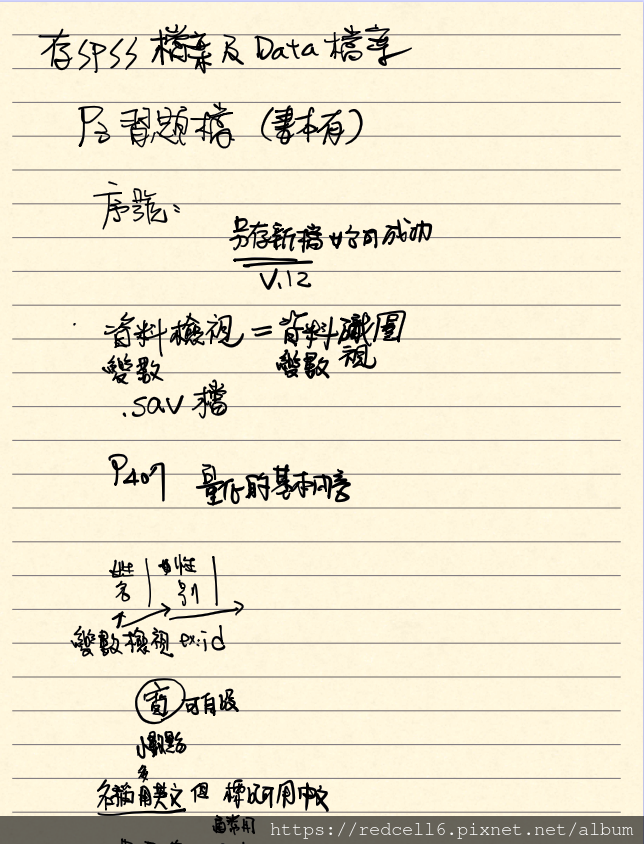 存SPSS檔案及Data檔案
P3 習題檔 (書本有)
序號:
另存新檔 始可成功
V.12
資料檢視 = 資料 視圖
變數 變數
.sav 檔
P407 量 的基本
姓名 | 性別 |
變數檢視 ex:id
寬 可自設
小數點
多
名稱用英文但 標 可用中文
通常用
https://redcell6.pixnet.net/album